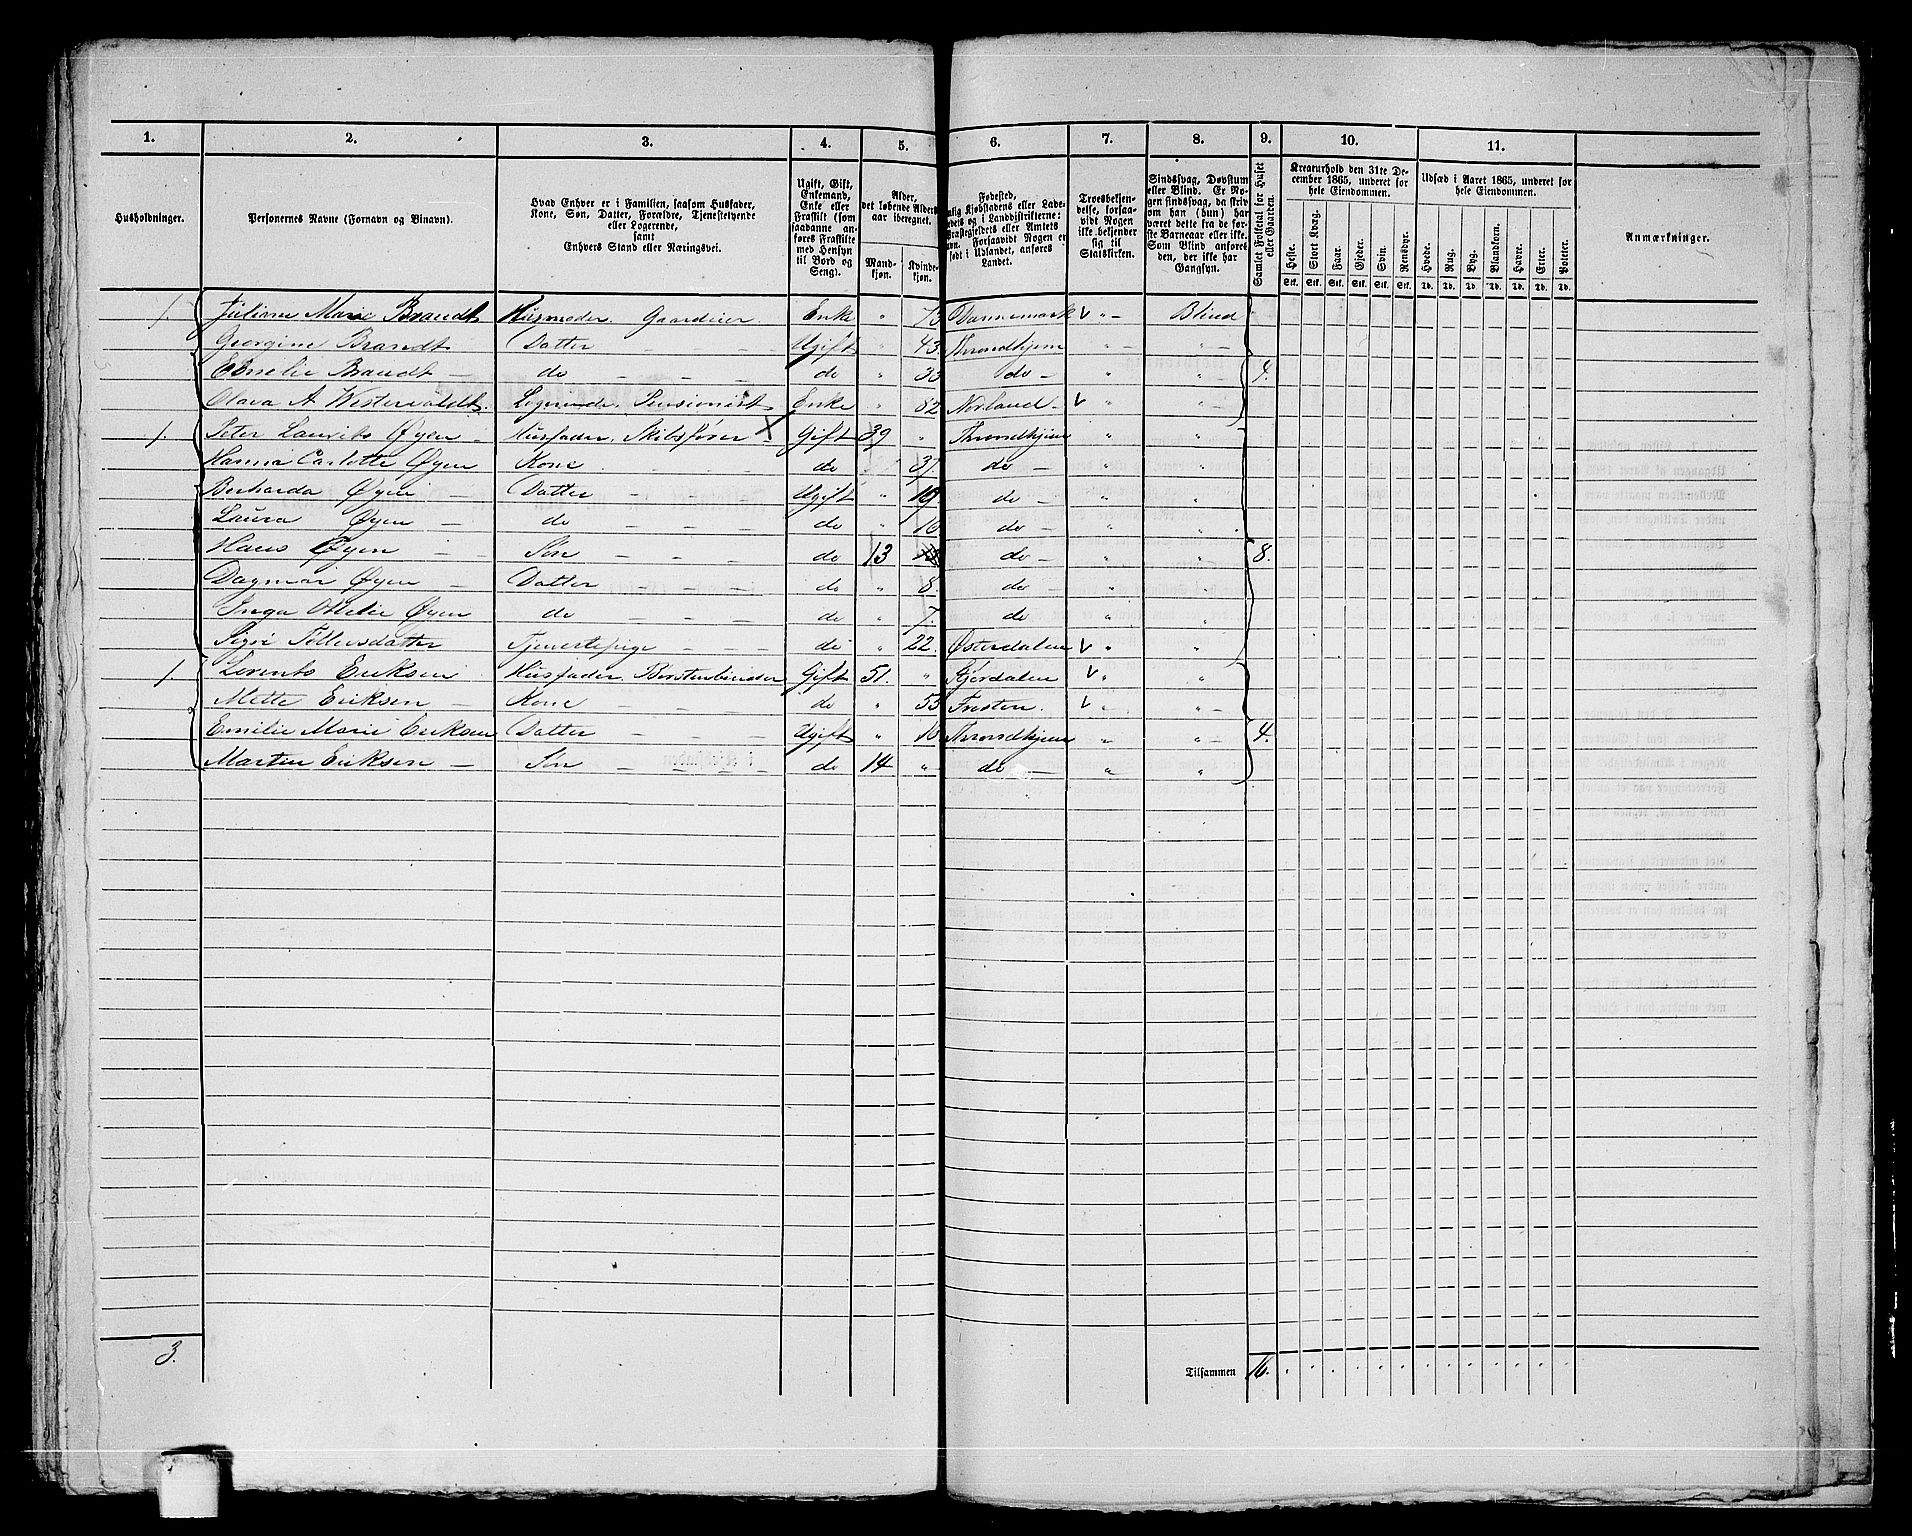 1. 2. 3. 4. 5. 6. 7. 8. 9. 10. 11.
Husholdninger.
Personernes Navne (Fornavn og Binavn).
Hvad Enhver er i Familien, saasom Husfader,
Kone, Søn, Datter, Forældre, Tjenestetyende
eller Logerende,
samt
Enhvers Stand eller Næringsvei.
Ugift, Gift,
Enkemand,
Enke eller
Fraskilt (som
saadanne an-
føres Fraskilte
med Hensyn
til Bord og
Seng).
Alder,
det løbende Alders-
aar iberegnet.
Mand-
kjøn.
Kvinde-
kjøn.
Fødested,
Troesbekjen-
delse, forsaa-
vidt Nogen
ikke bekjender
sig til
Statskirken.
Sindssvag, Døvstum
eller Blind. Er No-
gen sindssvag, da skriv
om han (hun) har
været dette fra de før-
ste Barneaar eller ikke.
Som Blind anføres
den, der ikke har
Gangsyn.
Samlet Folketal for Huset
eller Gaarden.
Kreaturhold den 31te De-
cember 1865, underet for
hele Eiendommen.
Heste. Stort Kvæg. Faar. Gjeder. Sviin. Rensdyr.
Stk. Stk. Stk. Stk. Stk. Stk.
Udsæd i Aaret 1865, underet for
hele Eiendommen.
Hvede. Rug. Byg. Blandkorn. Havre. Erter. Poteter.
Td. Td. Td. Td. Td. Td. Td.
Anmærkninger.
1. Juliane Marie Brandt Husmoder. Gaardeier. Enke " 73 Dannemark v " Blind
Georgine Brandt Datter Ugift " 43. Throndhjem " "
Emelie Brandt do do " 33 do " " 4.
Olava A Westervaldt. Logerende. Pensionist Enke " 82 Norland v " "
1. Peter Laurits Øyen Husfader. Skibsfører X Gift 39 " Throndhjem " "
Hanna Carlotte Øyen Kone do " 37. do " "
Berharda Øyen Datter Ugift " 19 do " "
Laura Øyen do do " 16 do " "
Hans Øyen Søn do 13 do " " 8.
Dagmar Øyen Datter do " 8. do " "
Inga Ottelie Øyen do do " 7. do " "
Sigri Tollersdatter Tjenestepige do " 22. Østerdalen v " "
1. Lorents Eriksen Husfader. Børstenbinder Gift 51. " Stjørdalen v " "
Mette Eriksen Kone do " 53 Frosten. v " "
Emilie Marie Eriksen Datter Ugift " 18 Throndhjem " " 4.
Martin Eriksen Søn do 14 " do " "
3.
Tilsammen 16.